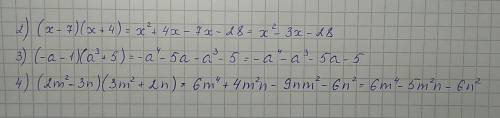 2) (x-7)(x+4) = x²+4x-7x-28 = x²-3x-28
3) (-a-1)(a³+5) = -a⁴-5a-a³-5 = -a⁴-a³-5a-5
4) (2m²-3n)(3m²+2n) = 6m⁴+4m²n-9nm²-6n² = 6m⁴-5m²n-6n²